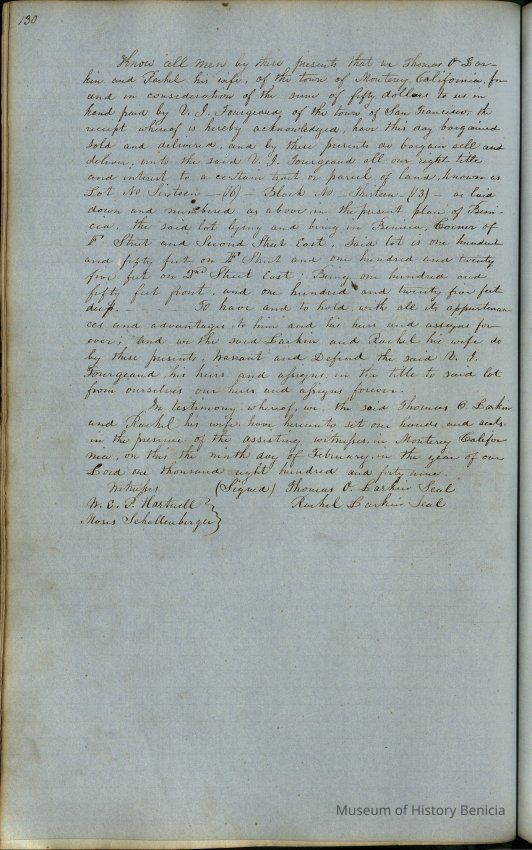 130
Know all men by these presents that we Thomas O Lar-
kin and Rachel his wife, of the town of Monterey, California, for
and in consideration of the sum of fifty dollars to us in
hand paid by V. J. Fourgeaud, of the town of San Francisco, the
receipt whereof is hereby acknowledged, have this day bargained
sold and delivered, and by these presents do bargain sell and
deliver, unto the said V. J. Fourgeaud all our right title
and interest to a certain lot or parcel of land, known as
Lot No Sixteen — (16) — Block No — Thirteen (13) — as laid
down and numbered as above in the present plan of Beni-
cia, the said lot lying and being in Benicia, Corner of
F Street and Second Street East, said lot is one hundred
and fifty feet on F Street and one hundred and twenty
five feet on 2nd Street East; Being one hundred and
fifty feet front, and one hundred and twenty five feet
deep. — — — To have and to hold, with all its appurtenan-
ces and advantages, to him and his heirs and assigns for-
ever; and we the said Larkin and Rachel his wife do
by these presents, Warrant and Defend the said V. J.
Fourgeaud his heirs and assigns, in the title to said lot
from ourselves our heirs and assigns forever.
In testimony, whereof, we, the said Thomas O. Larkin
and Rachel his wife, have hereunto set our hands and seals
in the presence of the assisting witnesses, in Monterey Califor
nia, on this the ninth day of February, in the year of our
Lord one thousand eight hundred and forty nine.
Witness (Signed) Thomas O. Larkin Seal
W. E. P. Hartnell } Rachel Larkin Seal
Moses Schallenberger }
Museum of History Benicia